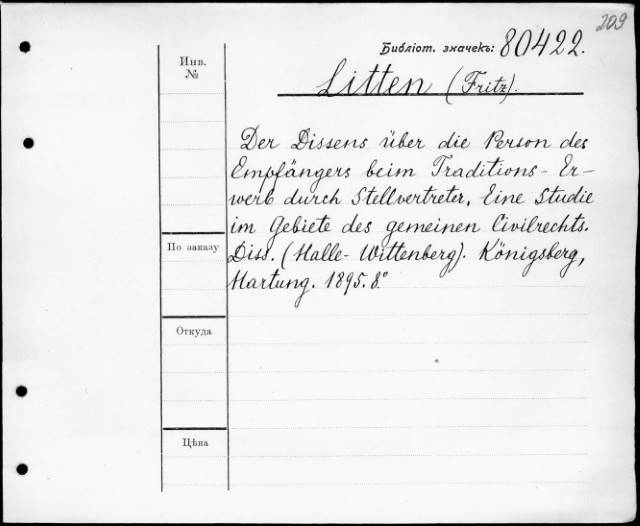 209
Библіот. значекъ: 80422.
Litten (Fritz).
Инв.
№
Der Dissens über die Person des
Empfängers beim Traditions-Er-
werb durch Stellvertreter. Eine Studie
im Gebiete des gemeinen Civilrechts.
Diss. (Halle-Wittenberg). Königsberg,
Hartung. 1895. 8°
По заказу
Откуда
Цѣна